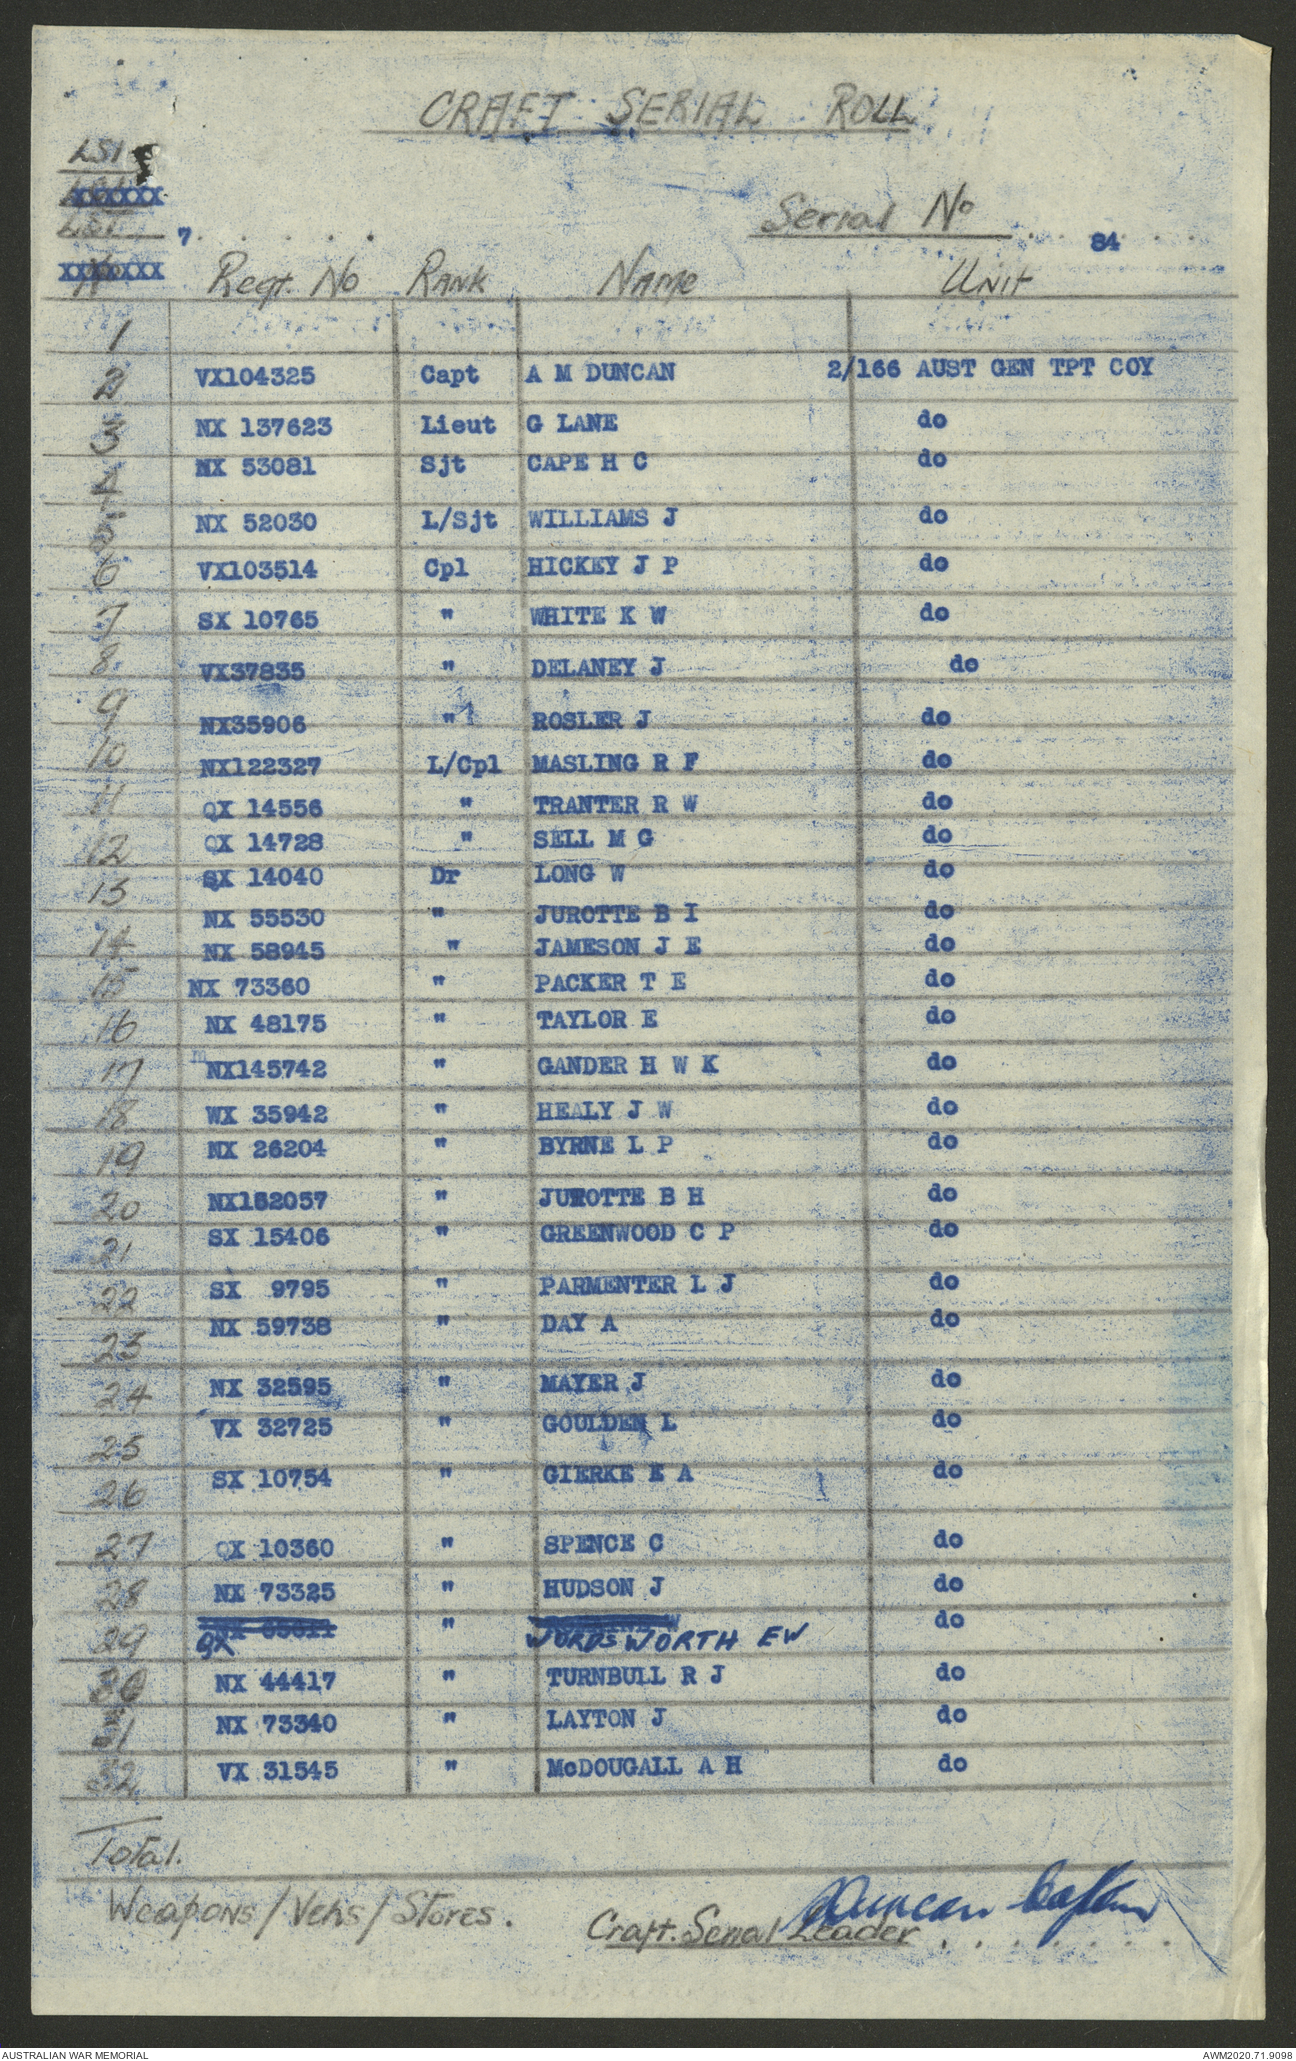 CRAFT SERIAL ROLL
LSI
XXXXXX
LST 7 . . . . . Serial No . . 84 . . .
XXXXXXX Regt. No RANK NAME UNIT
1
2 VX104325 Capt A M DUNCAN 2/166 AUST GEN TPT COY
3 NX 137623 Lieut G LANE do
4 NX 53081 Sjt CAPE H C do
5 NX 52030 L/Sjt WILLIAMS J do
6 VX103514 Cpl HICKEY J P do
7 SX 10765 " WHITE K W do
8 VX37835 " DELANEY J do
9 NX35906 " ROSLER J do
10 NX122327 L/Cpl MASLING R F do
11 QX 14556 " TRANTER R W do
12 QX 14728 " SELL M G do
13 SX 14040 Dr LONG W do
NX 55530 " JUROTTE B I do
14 NX 58945 " JAMESON J E do
15 NX 73360 " PACKER T E do
16 NX 48175 " TAYLOR E do
17 NX145742 " GANDER H W K do
18 WX 35942 " HEALY J W do
19 NX 26204 " BYRNE L P do
20 NX182057 " JUROTTE B H do
21 SX 15406 " GREENWOOD C P do
22 SX 9795 " PARMENTER L J do
23 NX 59738 " DAY A do
24 NX 32595 " MAYER J do
25 VX 32725 " GOULDEN L do
26 SX 10754 " GIERKE E A do
27 QX 10360 " SPENCE C do
28 NX 73325 " HUDSON J do
29 QX " WORDSWORTH EW do
30 NX 44417 " TURNBULL R J do
31 NX 73340 " LAYTON J do
32 VX 31545 " McDOUGALL A H do
Total.
Weapons/Vehs/Stores.
Craft. Serial Leader . . . . . .
Duncan Captain
AUSTRALIAN WAR MEMORIAL AWM2020.71.9098